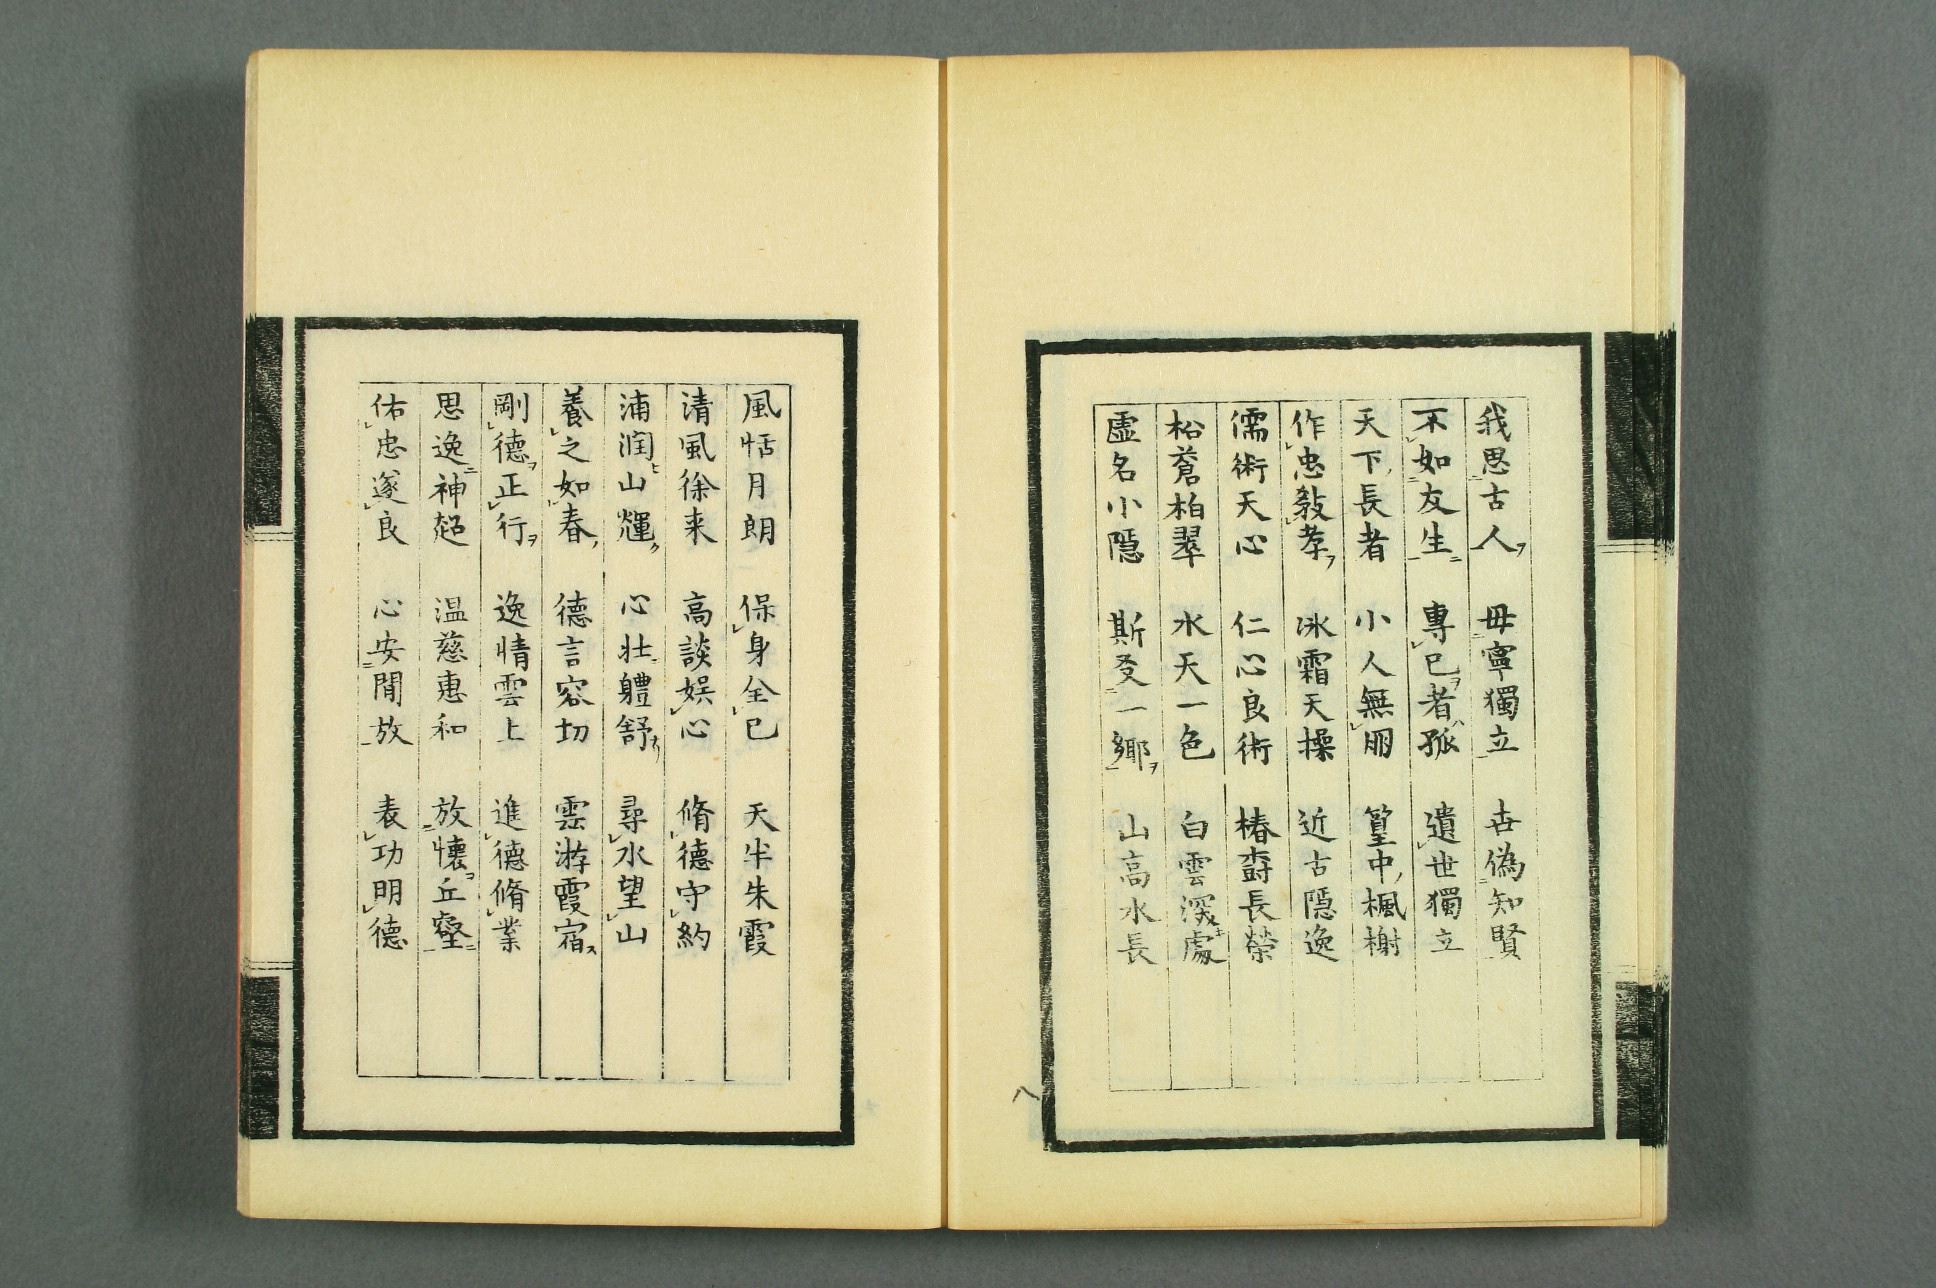 我思古人 毋寧獨立 去偽知賢
不如友生 專己者孤 遺世獨立
天下長者 小人無朋 篁中楓榭
作忠敎孝 冰霜天操 近古隠逸
儒術天心 仁心良術 椿壽長榮
松蒼柏翠 水天一色 白雲深處
虛名小隱 斯受一鄉 山高水長
風恬月朗 保身全己 天半朱霞
清風徐来 高談娱心 脩德守約
浦潤山輝 心壮體舒 尋水望山
養之如春 德言容切 雲游霞宿
剛德正行 逸情雲上 進德脩業
思逸神超 温慈惠和 放懷丘壑
佑忠遂良 心安閒放 表功明德
八